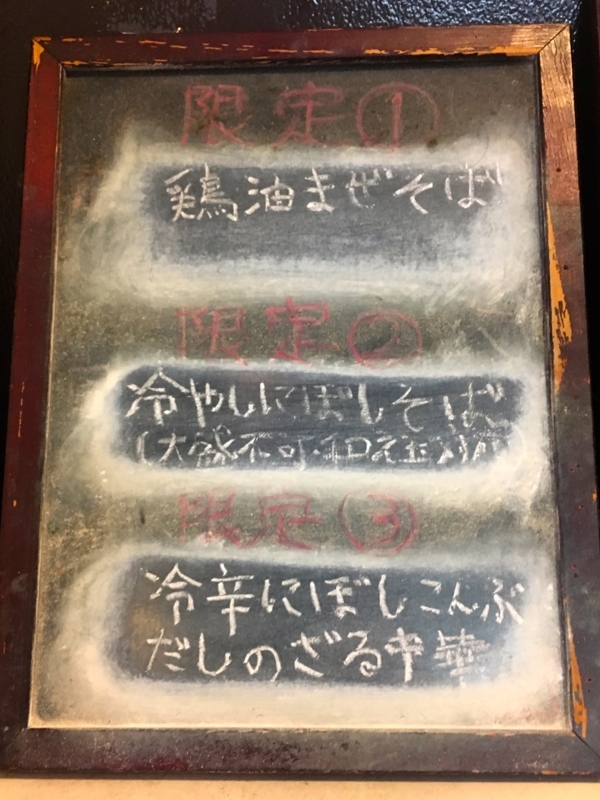 限定①
鶏油まぜそば
限定②
冷やしにぼしそば
(大盛不可・和え玉対応)
限定③
冷辛にぼしこんぶ
だしのざる中華